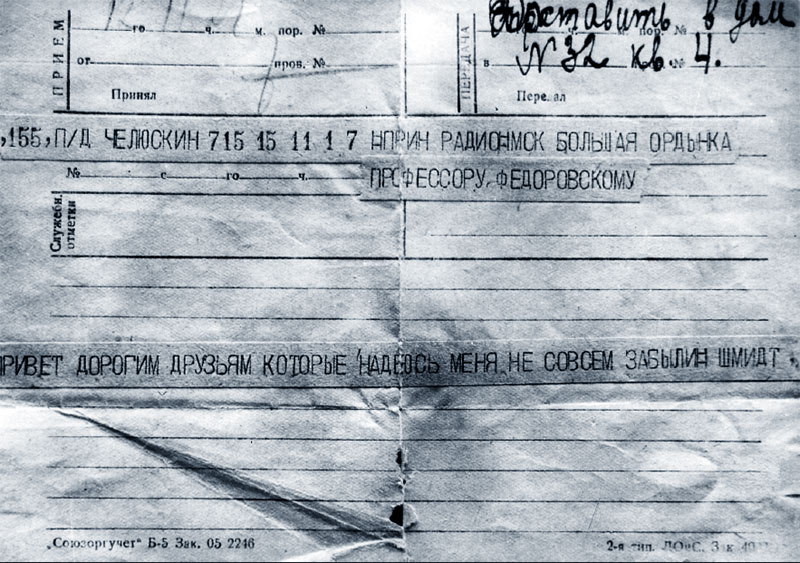 го ч. м. пор. №
Доставить в дом
ПРИЕМ
ПЕРЕДАЧА
от пров. №
в № 32 кв. 4.
Принял
Передал
,155, П/Д ЧЕЛЮСКИН 715 15 11 1 7 НПРИН РАДИО=МСК БОЛЬШАЯ ОРДЫНКА
№ с го ч.
ПРОФЕССОРУ ФЕДОРОВСКОМУ
Служебн.
отметки
ПРИВЕТ ДОРОГИМ ДРУЗЬЯМ КОТОРЫЕ НАДЕЮСЬ МЕНЯ НЕ СОВСЕМ ЗАБЫЛИ= ШМИДТ
„Союзоргучет“ Б-5 Зак. 05 2246
2-я тип. Зак